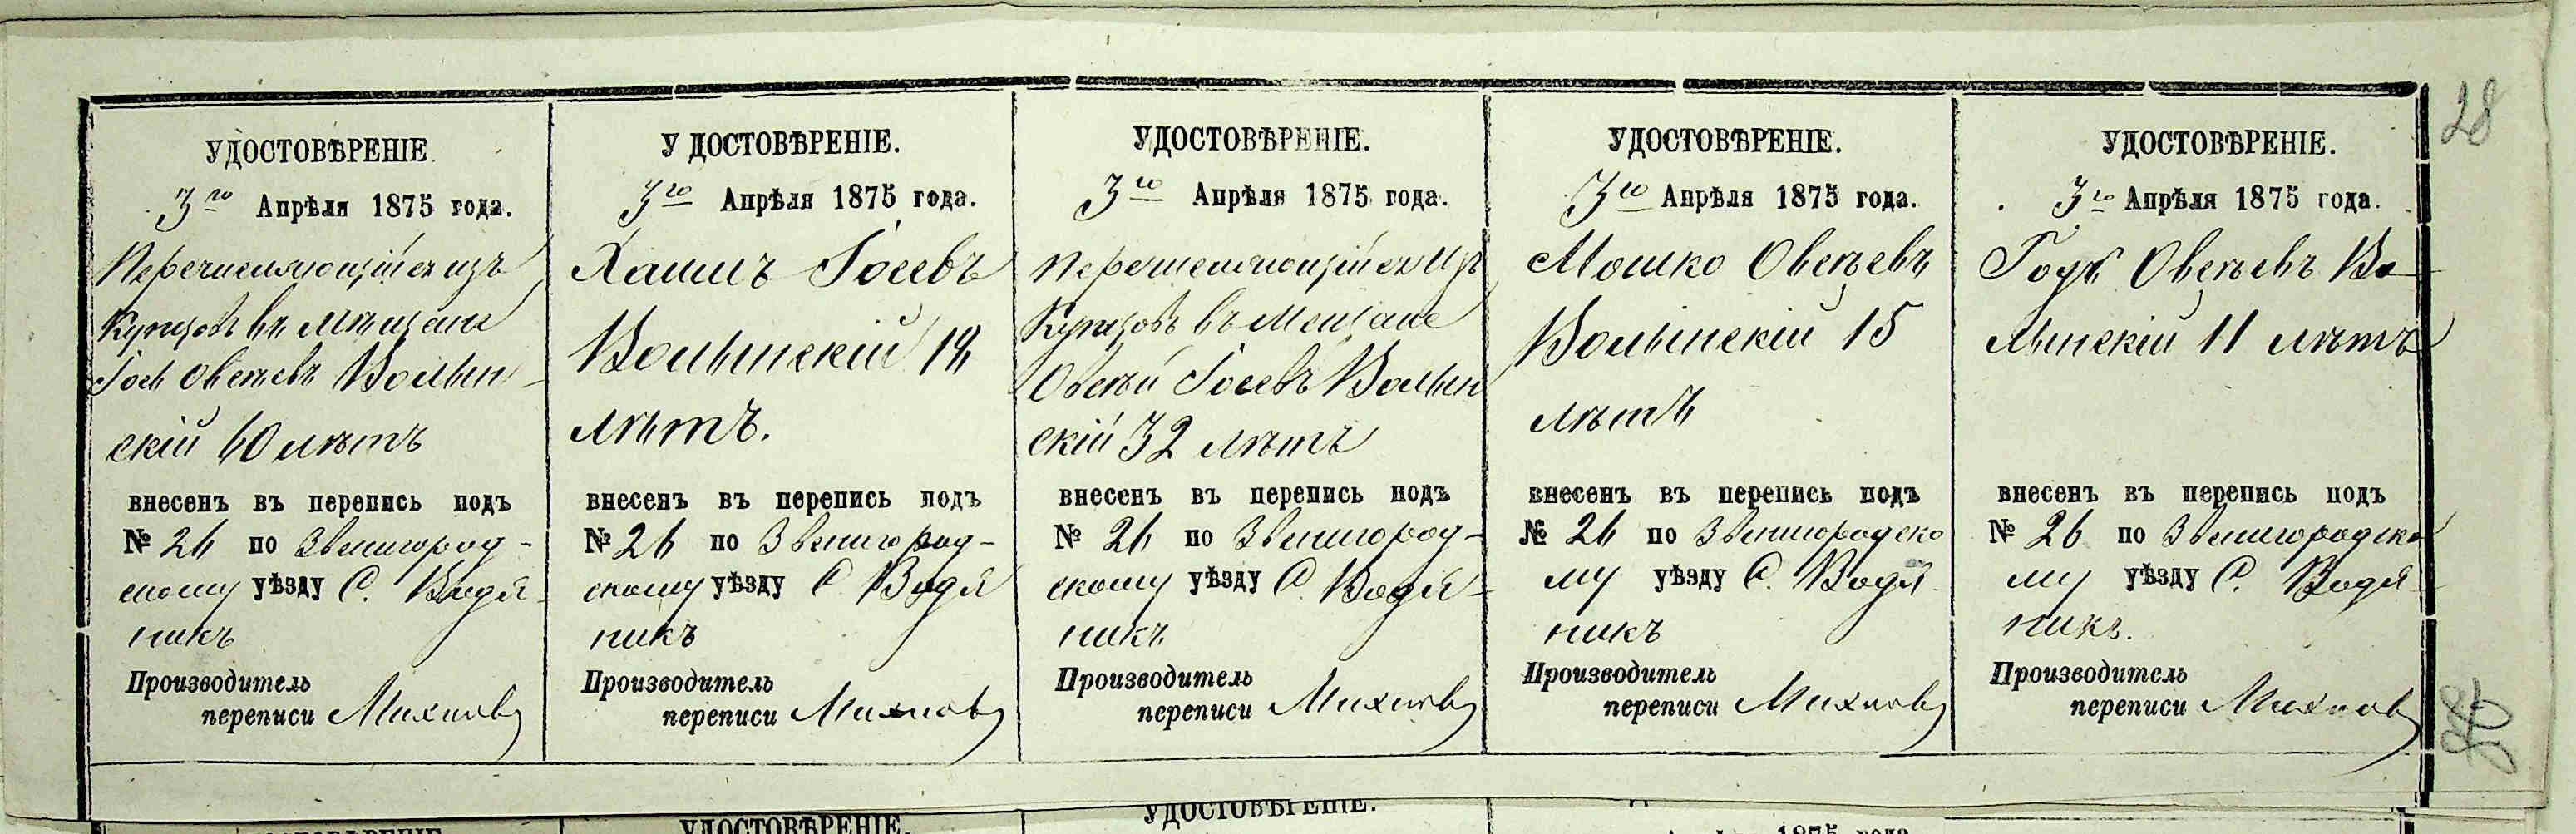 28
УДОСТОВѢРЕНІЕ.
3го Апрѣля 1875 года.
Перечисляющійся изъ
Купцовъ въ мѣщане
Іось Овсѣевъ Волын-
скій 60 лѣтъ
внесенъ въ перепись подъ
№ 26 по Звенигород-
скому уѣзду С. Водя-
никъ
Производитель
переписи Михновъ
УДОСТОВѢРЕНІЕ.
3го Апрѣля 1875 года.
Хаимъ Іосевъ
Волынскій 19
лѣтъ.
внесенъ въ перепись подъ
№ 26 по Звенигород-
скому уѣзду С. Водя
никъ
Производитель
переписи Михновъ
УДОСТОВѢРЕНІЕ.
3го Апрѣля 1875 года.
Перечисляющійся изъ
Купцовъ въ Мещане
Овсѣй Іосевъ Волын
скій 32 лѣтъ
внесенъ въ перепись подъ
№ 26 по Звенигород-
скому уѣзду С. Водя-
никъ
Производитель
переписи Михновъ
УДОСТОВѢРЕНІЕ.
3го Апрѣля 1875 года.
Мошко Овсѣевъ
Волынскій 15
лѣтъ
внесенъ въ перепись подъ
№ 26 по Звенигородско
му уѣзду С. Водя
никъ
Производитель
переписи Михновъ
УДОСТОВѢРЕНІЕ.
3го Апрѣля 1875 года.
Овсѣевъ Во-
лынскій 11 лѣтъ
внесенъ въ перепись подъ
№ 26 по Звенигородско
му уѣзду С. Водя-
никъ.
Производитель
переписи Михновъ
УДОСТОВѢРЕНІЕ.
УДОСТОВѢРЕНІЕ.
УДОСТОВѢРЕНІЕ.
1875 года